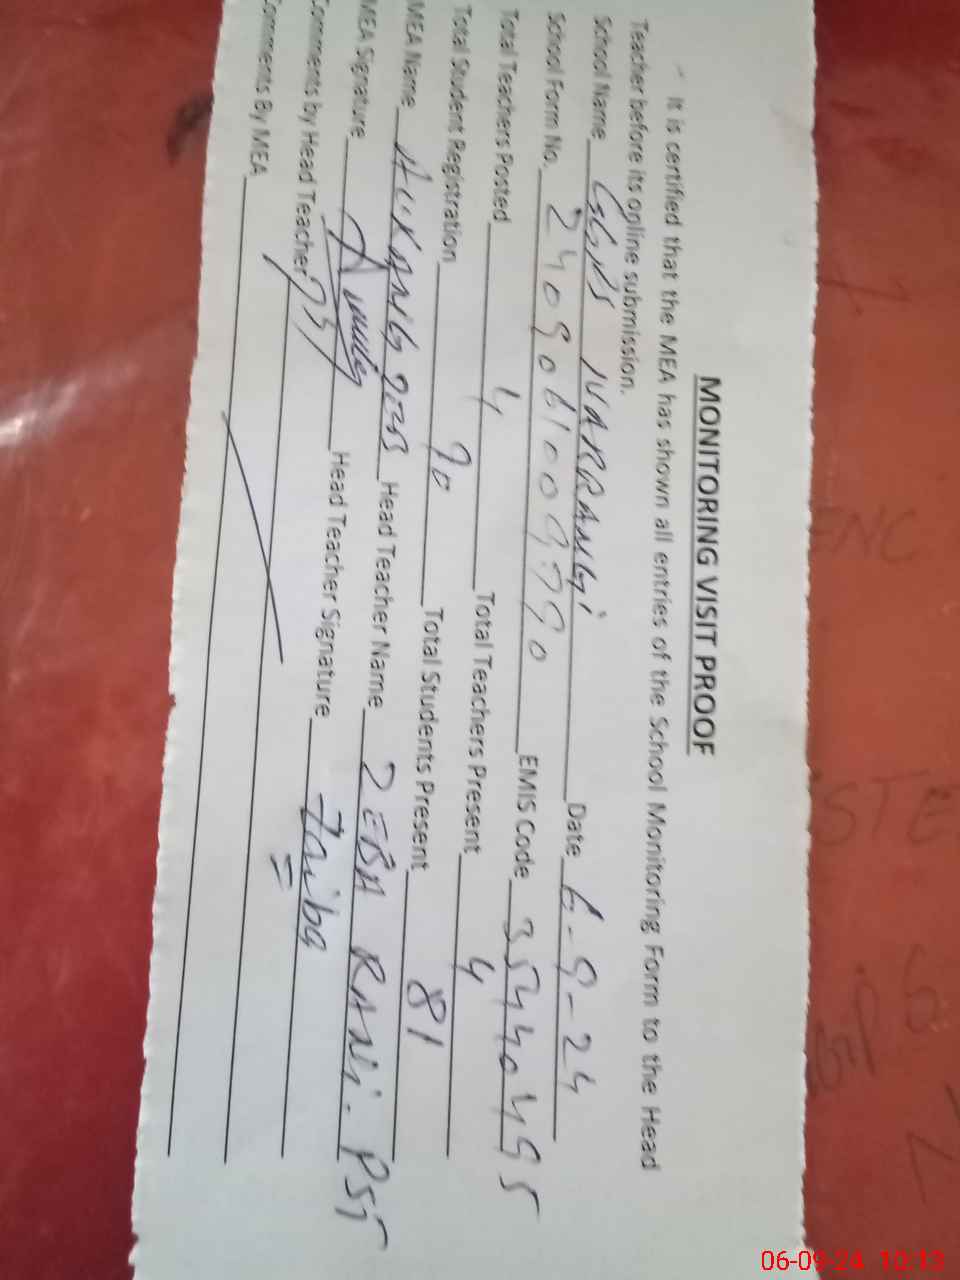 MONITORING VISIT PROOF
It is certified that the MEA has shown all entries of the School Monitoring Form to the Head
Teacher before its online submission.
School Name GGPS NARRANGI Date 6-9-24
School Form No. EMIS Code 35440495
Total Teachers Posted 4 Total Teachers Present 4
Total Student Registration 90 Total Students Present 81
MEA Name Head Teacher Name ZEBA RANI. PST
MEA Signature Head Teacher Signature Zaiba
Comments by Head Teacher
Comments By MEA
06-09-24 10:13